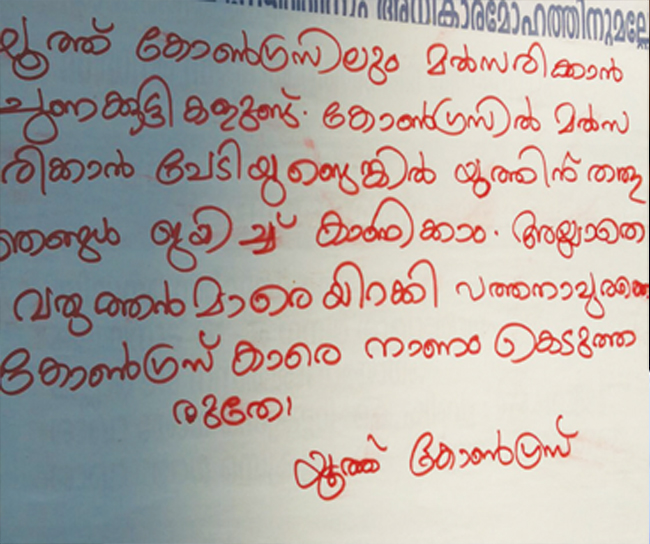 അധികാരമോഹത്തിനുമല്ലേ
യൂത്ത് കോൺഗ്രസിലും മൽസരിക്കാൻ
ചുണക്കുട്ടികളുണ്ട്. കോൺഗ്രസിൽ മൽസ
രിക്കാൻ പേടിയുണ്ടെങ്കിൽ യൂത്തിന് തരൂ
ഞങ്ങൾ ജയിച്ച് കാണിക്കാം. അല്ലാതെ
വരുത്തൻമാരെയിറക്കി പത്തനാപുരത്തെ
കോൺഗ്രസ് കാരെ നാണം കെടുത്ത
രുതേ!
യൂത്ത് കോൺഗ്രസ്